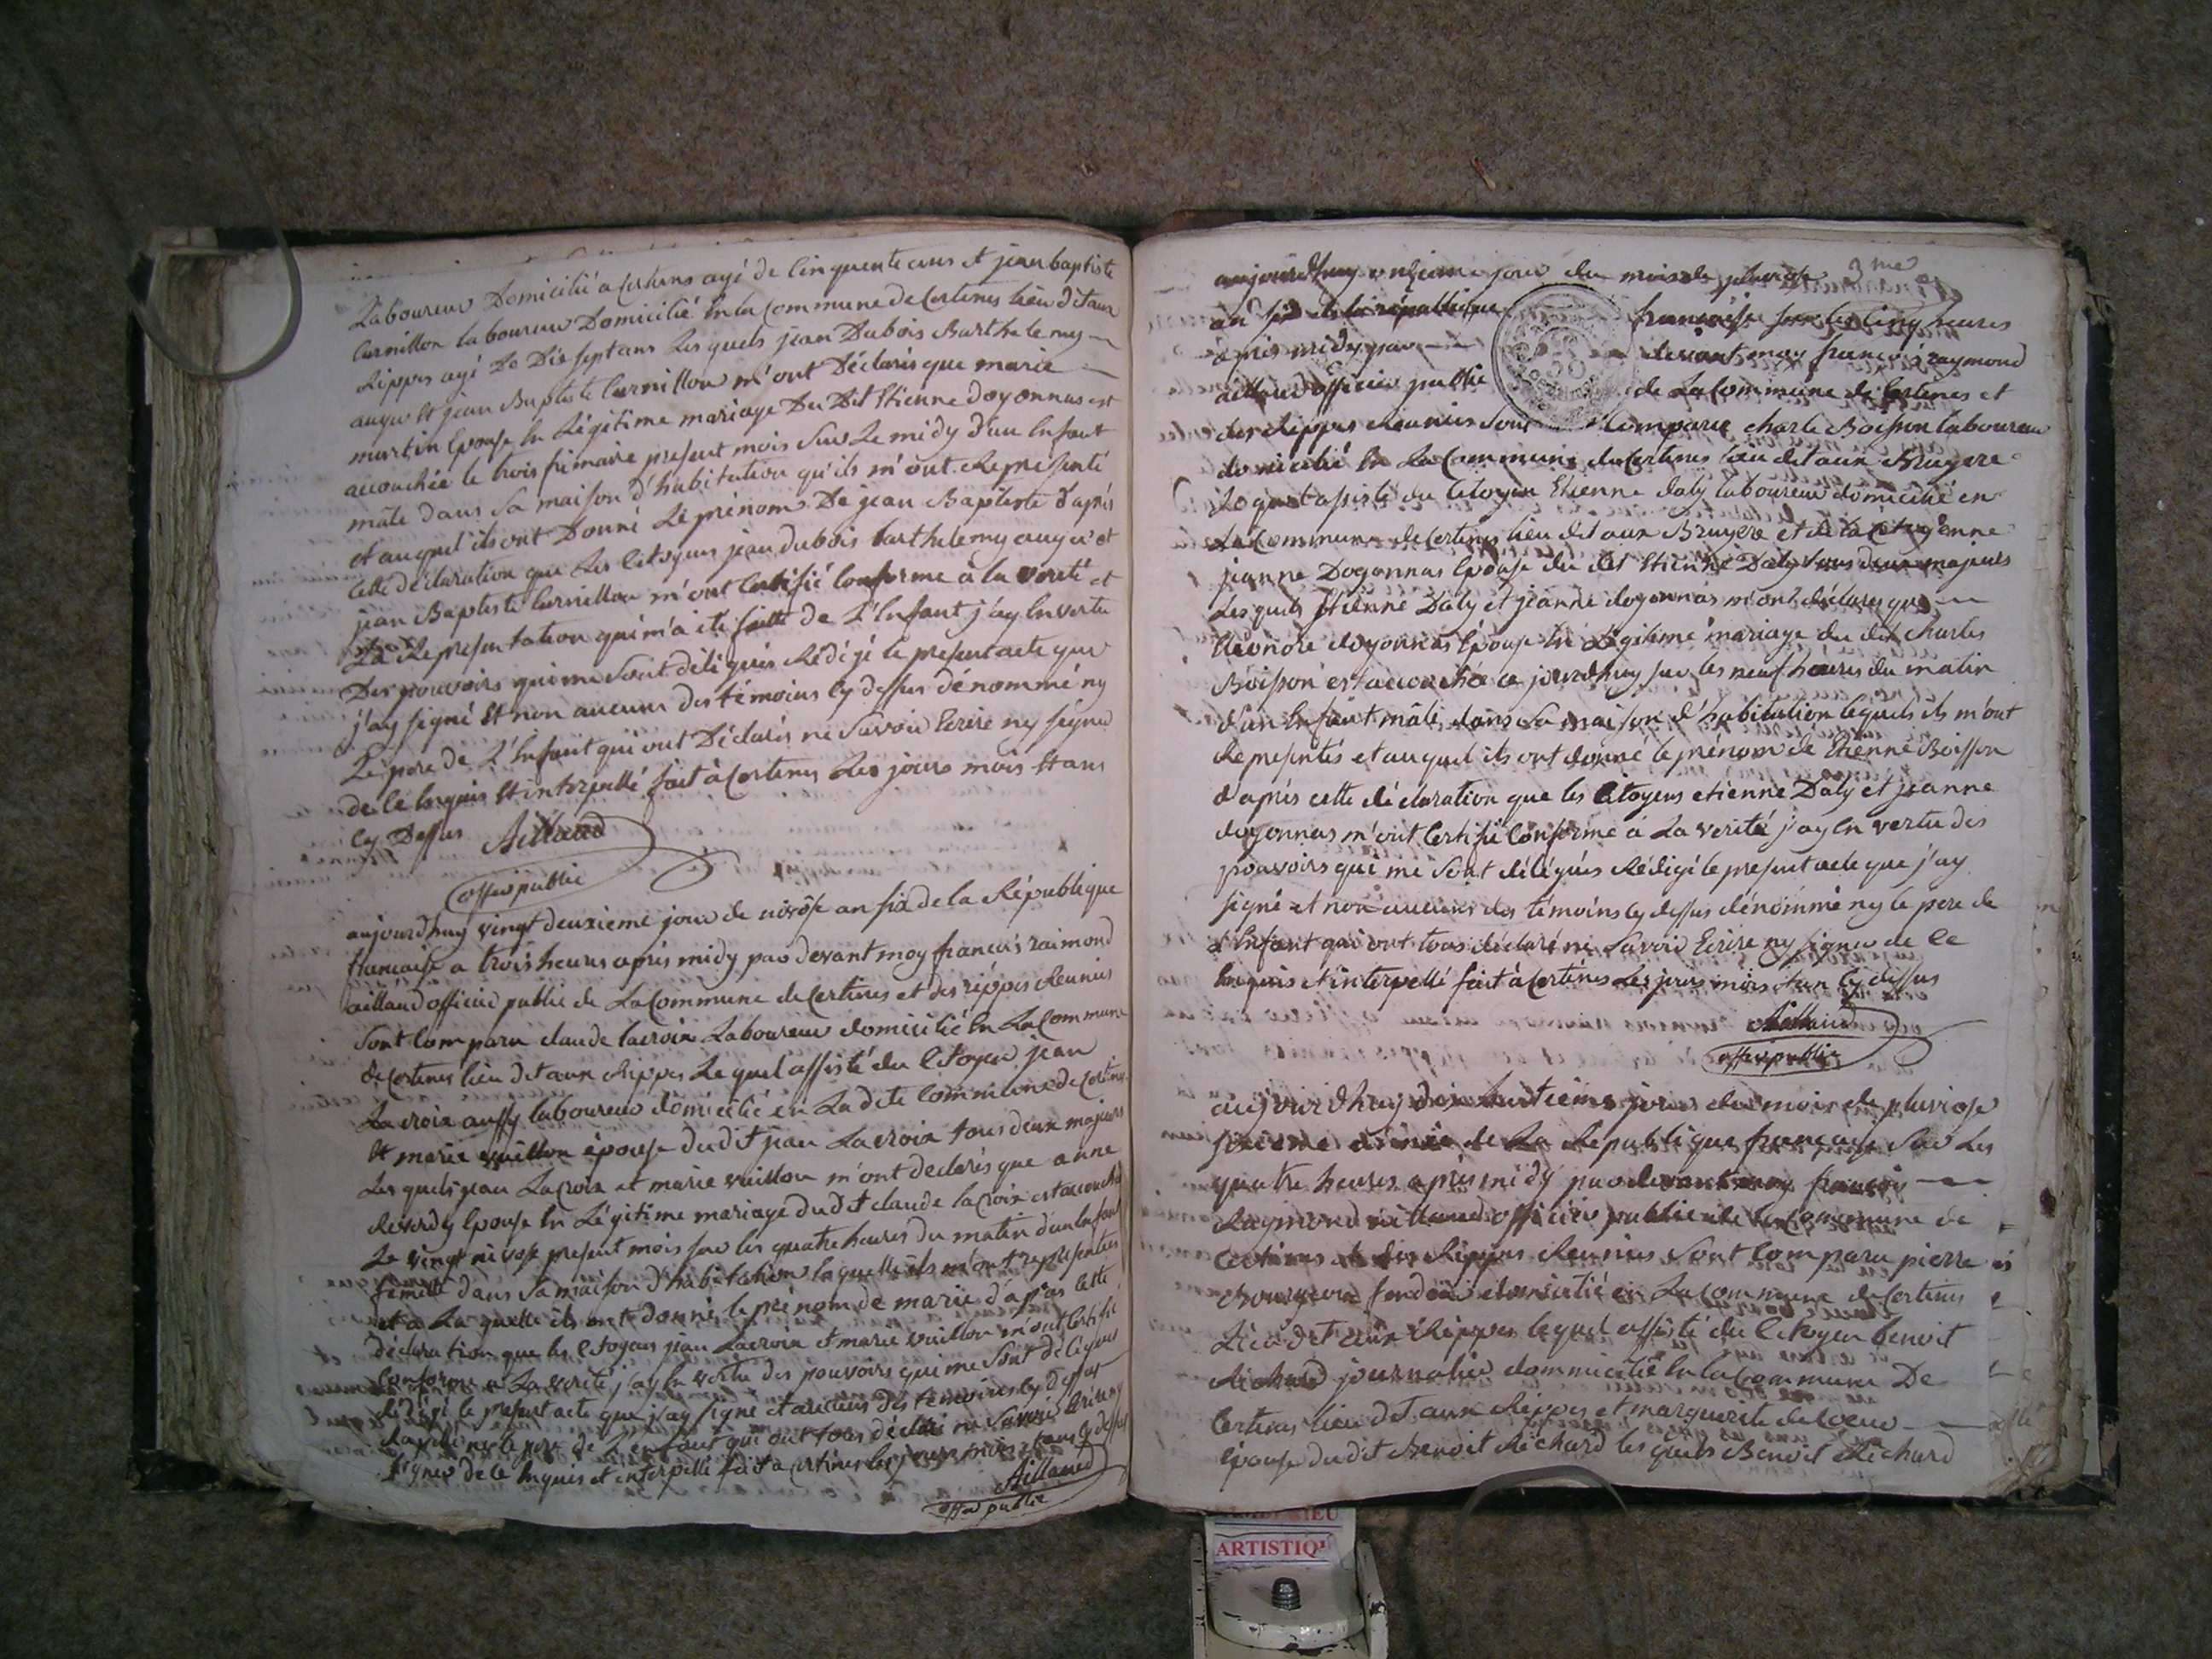 Laboureur Domicilié a Certines agé de Cinquente ans et jean baptiste
Curnillon laboureur Domicilié En la Commune de Certines lieu dit aux
Rippes agé De Dix sept ans Les quels jean Dubois Barthelemy
auger Et jean Baptiste Curnillon m'ont Déclarés que marie
martin Epouse En Légitime mariage Du Dit Etienne doyonnas est
accouchée le trois frimaire present mois Sur Le midy d'un Enfant
mâle dans Sa maison d'habitation qu'ils m'ont Representé
et auquel ils ont Donné Le prénom De jean Baptiste d'après
Cette déclaration que Les Citoyens jean dubois barthélemy auger et
jean Baptiste Curnillon m'ont Certifié Conforme à la verité et
La Representation qui m'a été faitte de L'Enfant j'ay En vertu
Des pouvoirs qui me Sont délégués Rédigé le present acte que
j'ay signé Et non aucuns des témoins Cy dessus dénommé ny
Le pere de L'Enfant qui ont Déclarés ne Savoir Ecrire ny signer
de Ce Enquis Et interpellé fait à Certines Les jours mois Et ans
Cy Dessus Aillaud
officier public
aujourdhuy vingt deuxieme jour de nivôse an six de la République
française a trois heures après midy par devant moy francois raimond
aillaud officier public de La Commune de Certines et des rippes Reunies
Sont Comparu claude lacroix Laboureur domicilié En La Commune
de Certines lieu dit aux Rippes Le quel assisté du Citoyen jean
Lacroix aussy laboureur domicilié en La dite Commune de Certines
Et marie vuillon épouse du dit jean Lacroix tous deux majeurs
Les quels jean Lacroix et marie vuillon m'ont declarés que anne
deverdy Epouse En Légitime mariage du dit claude lacroix est accouchée
Le vingt nivose present mois sur les quatre heures du matin d'un Enfant
femelle dans Sa maison d'habitation laquelle ils m'ont representés
et a La quelle ils ont donné le prénom de marie d'après Cette
déclaration que les Citoyens jean Lacroix et marie vuillon m'ont Certifié
Conforme a La verité j'ay En vertu des pouvoirs qui me Sont délégués
rédigé le present acte que j'ay signé et aucuns des témoins Cy dessus
ny le pere de L'enfant qui ont tous déclaré ne Savoir Ecrire ny
signer de Ce Enquis et interpellé fait a Certines les jours mois et ans Cy dessus
Aillaud
officier public
3me
aujourdhuy onzieme jour du mois de pluviose
an six de la république française sur les Cinq heures
après midy par devant moy françois raymond
aillaud officier public de La Commune de Certines et
des Rippes Reunies Sont Comparu charle Boisson laboureur
domicilié En La Commune de Certines lieu dit aux Bruyere
Lequel assisté du Citoyen Etienne daly laboureur domicilié en
La Commune de Certines lieu dit aux Bruyere et de la Citoyenne
jeanne Dogonnas Epouse du dit Etienne Daly tous deux majeurs
Les quels Etienne Daly et jeanne doyonnas m'ont déclarés que
Eléonore doyonnas Epouse En Légitime mariage du dit Charles
Boisson est accouchée ce jourdhuy sur les neuf heures du matin
d'un Enfant mâle dans Sa maison d'habitation lequels ils m'ont
Representés et auquel ils ont donné le prénom de Etienne Boisson
d'après cette déclaration que les Citoyens etienne Daly et jeanne
doyonnas m'ont Certifié Conforme à La verité j'ay En vertu des
pouvoirs qui me Sont délégués Rédigé le present acte que j'ay
signé et non aucuns des témoins Cy dessus dénommé ny le pere de
L'Enfant qui ont tous déclaré ne Savoir Ecrire ny signer de Ce
Enquis et interpellé fait à Certines Les jours mois et an Cy dessus
Aillaud
officier public
aujourdhuy dix huitieme jour du mois de pluviose
sixieme année de La Republique française Sur Les
quatre heures après midy par devant moy françois
Raymond aillaud officier public de la Commune de
Certines et des Rippes Reunies Sont Comparu pierre
domicilié en La Commune de Certines
Lieu dit aux Rippes lequel assisté du Citoyen benoit
Richard journalier dommicilié En la Commune De
Certines lieu dit aux Rippes et marguerite
Epouse du dit Benoit Richard les quels Benoit Richard
ARTISTIQ